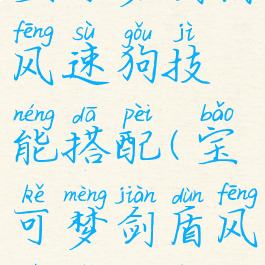 fēng sù gǒu jì
风速狗技
néng dā pèi bǎo
能搭配(宝
kě mèng jiàn dùn fēng
可梦剑盾风